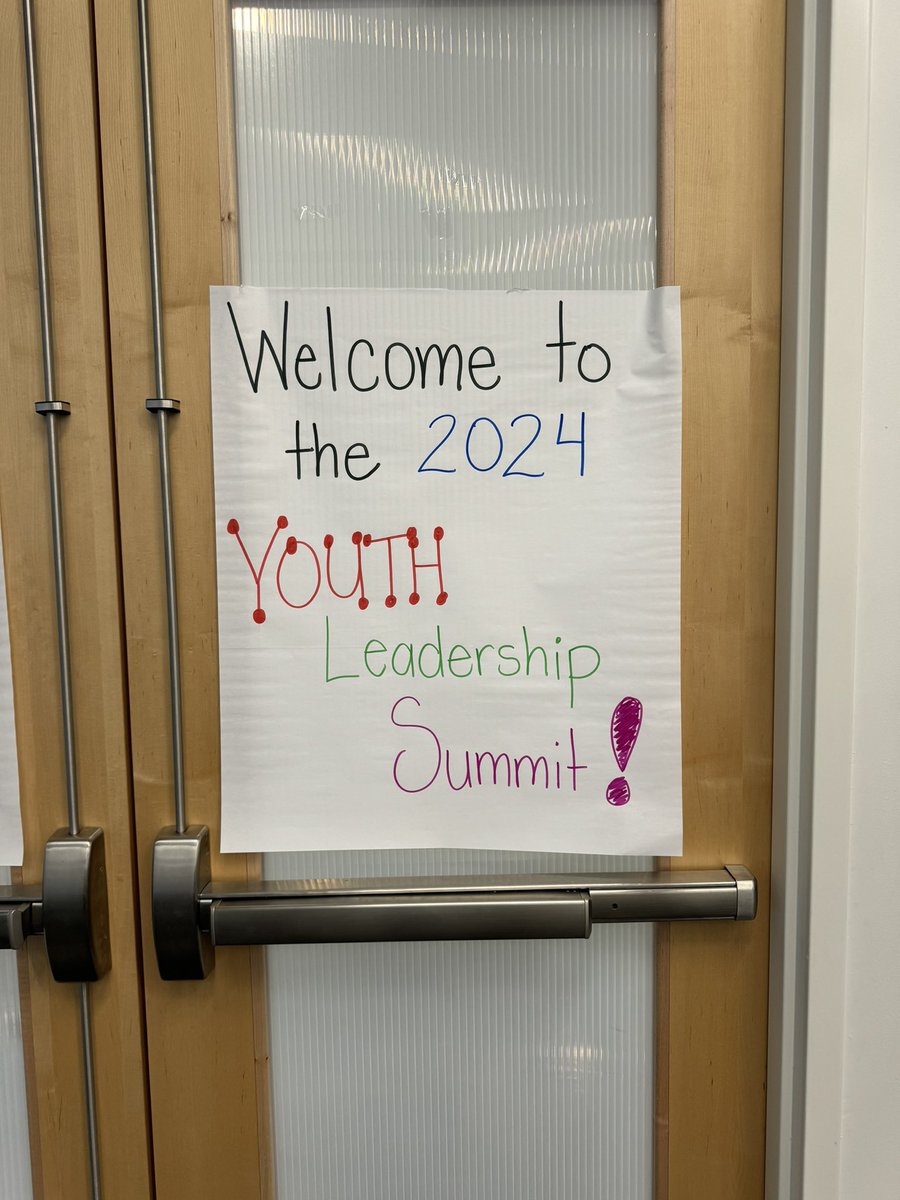 Welcome to
the 2024
YOUTH
Leadership
Summit!